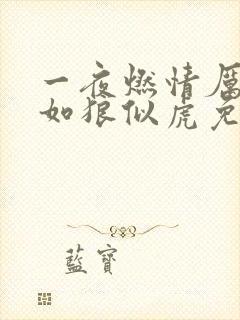 一夜燃情厲
如狼似虎免
藍寶